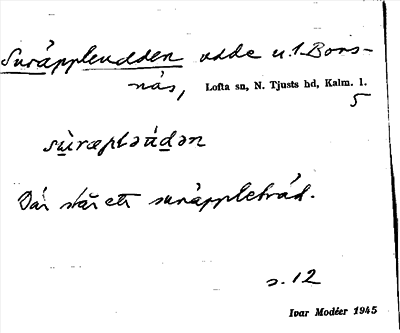 Suräppleudden udde u. 1. Bors-
näs, Lofta sn, N. Tjusts hd, Kalm. l.
5
Där står ett suräppleträd.
s. 12
Ivar Modéer 1945